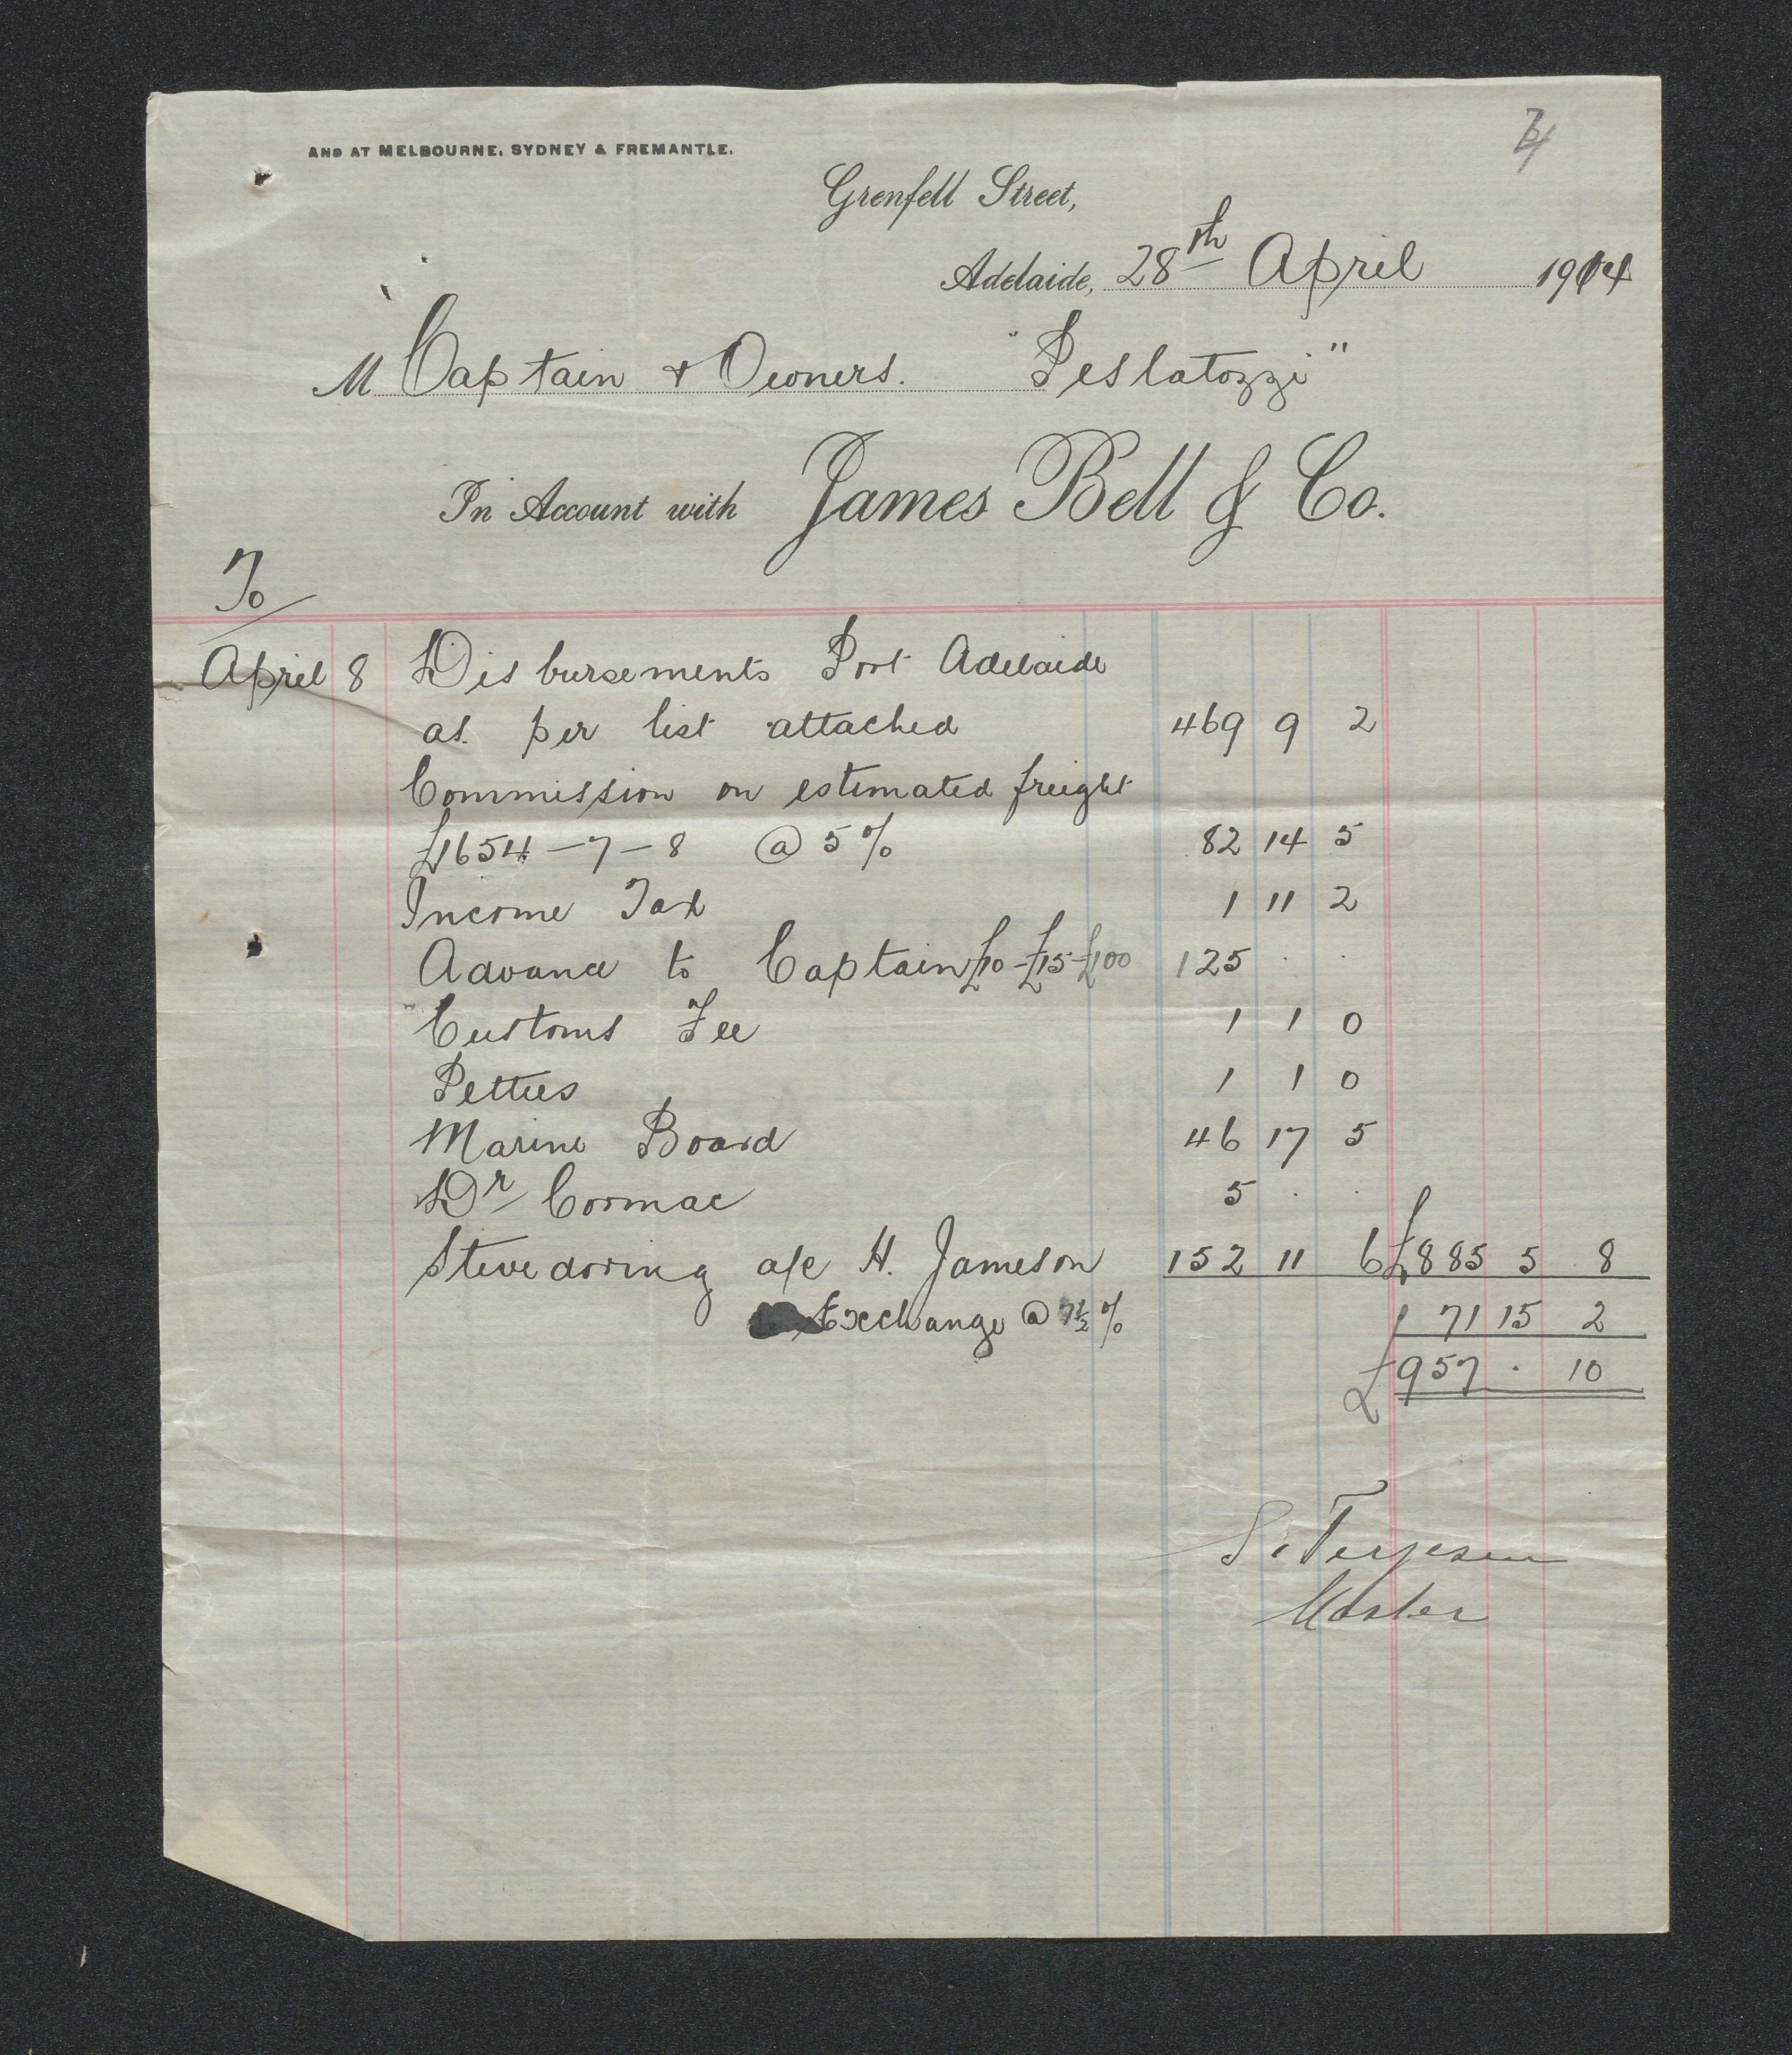 AND AT MELBOURNE, SYDNEY & FREMANTLE.
Grenfell Street,
Adelaide, 28th April 1914
M Captain & Owners. "Peslatozzi"
In Account with James Bell & Co.
To
April 8 Disbursements Port Adelaide
as per list attached 469 9 2
Commission on estimated freight
£1654-7-8 @ 5% 82 14 5
Income Tax 1 11 2
Advance to Captain £10-£15-£100 125 . .
Customs Fee 1 1 0
Petties 1 1 0
Marine Board 46 17 5
Dr Cormac 5 . .
Stevedoring a/c H. Jameson 152 11 6 £885 5 8
Exchange @ 7½% 71 15 2
£957 . 10
S. Terjesen
Master